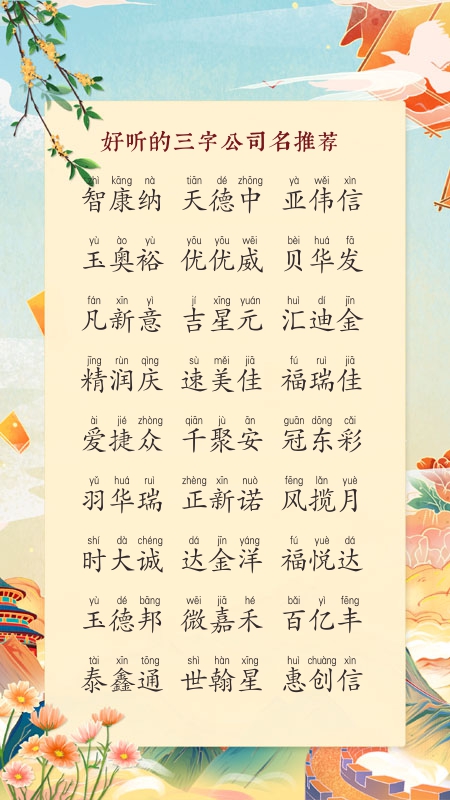 好听的三字公司名推荐
zhì kāng nà tiān dé zhōng yà wěi xìn
智康纳 天德中 亚伟信
yù ào yù yōu yōu wēi bèi huá fā
玉奥裕 优优威 贝华发
fán xīn yì jí xīng yuán huì dí jīn
凡新意 吉星元 汇迪金
jīng rùn qìng sù měi jiā fú ruì jiā
精润庆 速美佳 福瑞佳
ài jié zhòng qiān jù ān guān dōng cǎi
爱捷众 千聚安 冠东彩
yǔ huá ruì zhèng xīn nuò fēng lǎn yuè
羽华瑞 正新诺 风揽月
shí dà chéng dá jīn yáng fú yuè dá
时大诚 达金洋 福悦达
yù dé bāng wēi jiā hé bǎi yì fēng
玉德邦 微嘉禾 百亿丰
tài xīn tōng shì hàn xīng huì chuàng xìn
泰鑫通 世翰星 惠创信